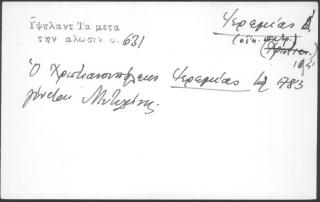 Ὑψηλαντ Τα μετα
την αλωσιν σ. 631
Ἱερεμίας Δ'
(οἰκ. πατρ.)
(Χριστιαν.
Ὁ Χριστιανουπόλεως Ἱερεμίας τῷ 1783
γίνεται Μυτιλήνης.